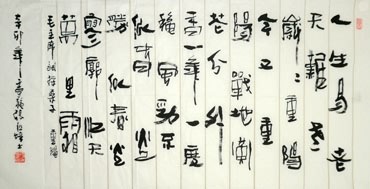 人生易老
天難老
歲歲重陽
今又重
陽戰地黃
花分外
香一年一度
秋風勁不
似春光
勝似春光
寥廓江天
萬里霜
毛主席詞採桑子重陽
辛卯年